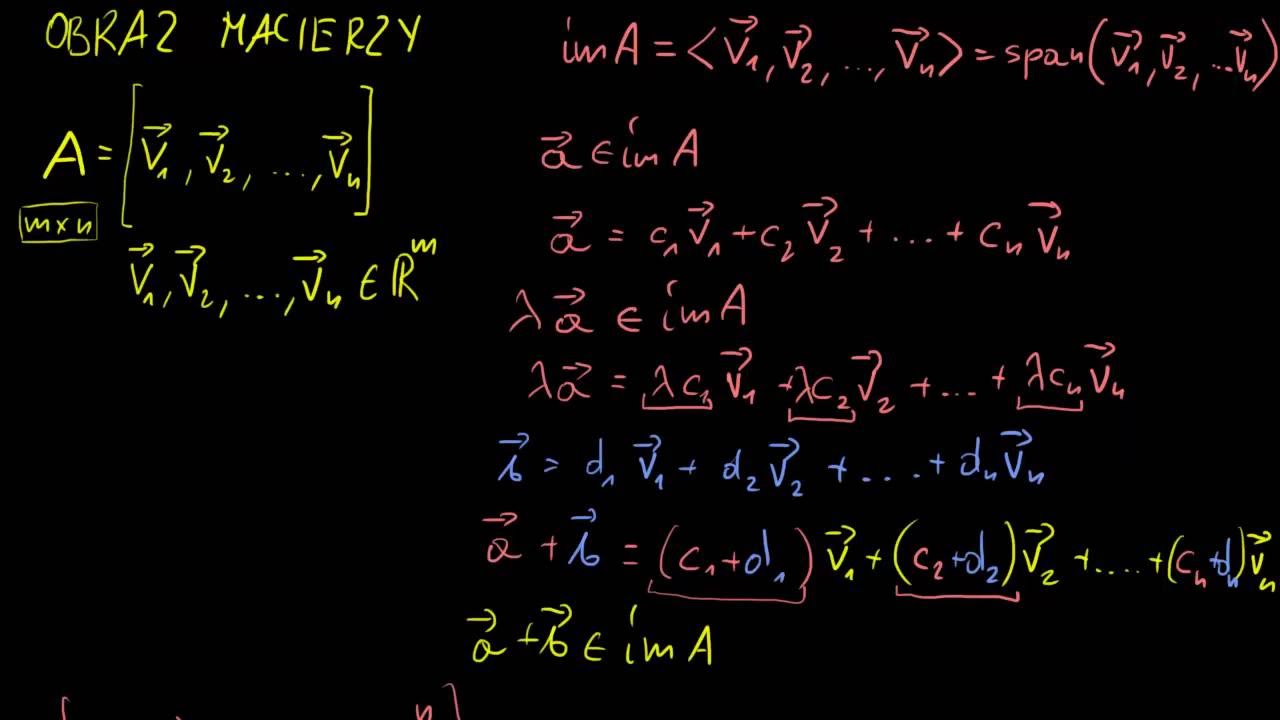 OBRAZ MACIERZY
A = [v⃗₁, v⃗₂, ..., v⃗ₙ]
m×n
v⃗₁, v⃗₂, ..., v⃗ₙ ∈ ℝᵐ
im A = <v⃗₁, v⃗₂, ..., v⃗ₙ> = span(v⃗₁, v⃗₂, ... v⃗ₙ)
a⃗ ∈ im A
a⃗ = c₁v⃗₁ + c₂v⃗₂ + ... + cₙv⃗ₙ
λa⃗ ∈ im A
λa⃗ = λc₁v⃗₁ + λc₂v⃗₂ + ... + λcₙv⃗ₙ
b⃗ = d₁v⃗₁ + d₂v⃗₂ + .... + dₙv⃗ₙ
a⃗ + b⃗ = (c₁+d₁)v⃗₁ + (c₂+d₂)v⃗₂ + .... + (cₙ+dₙ)v⃗ₙ
a⃗ + b⃗ ∈ im A